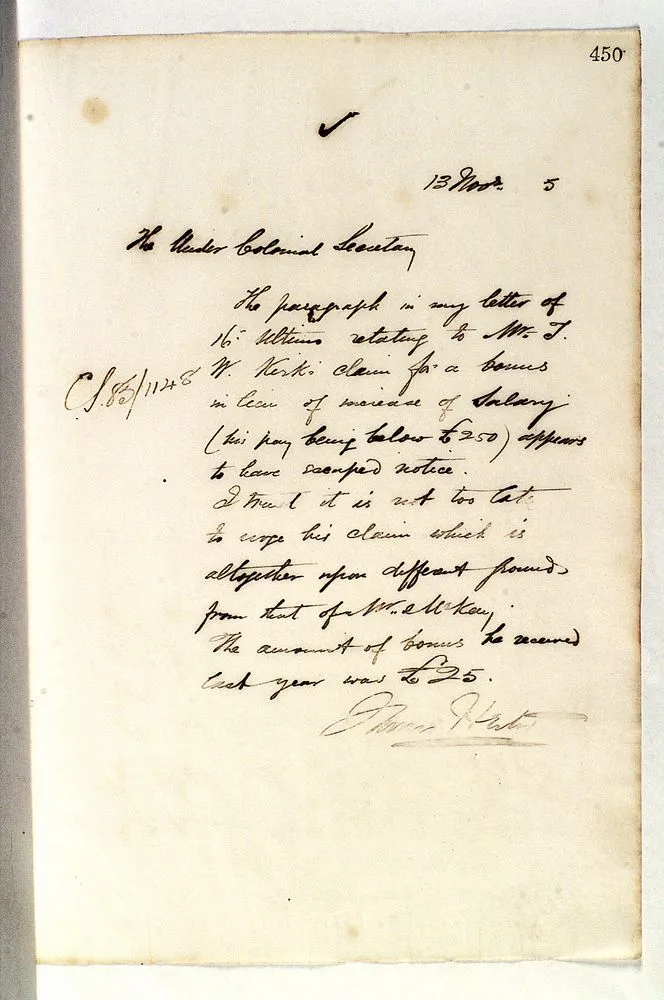 450
13 Novr. 5
The Under Colonial Secretary
The paragraph in my letter of
16th Ultimo relating to Mr. T.
W. Kirk's claim for a bonus
CS. 85/1148
in lieu of increase of Salary
(his pay being below £250) appears
to have escaped notice.
I trust it is not too late
to urge his claim which is
altogether upon different grounds
from that of Mr. McKay.
The amount of bonus he received
last year was £25.
James Hector